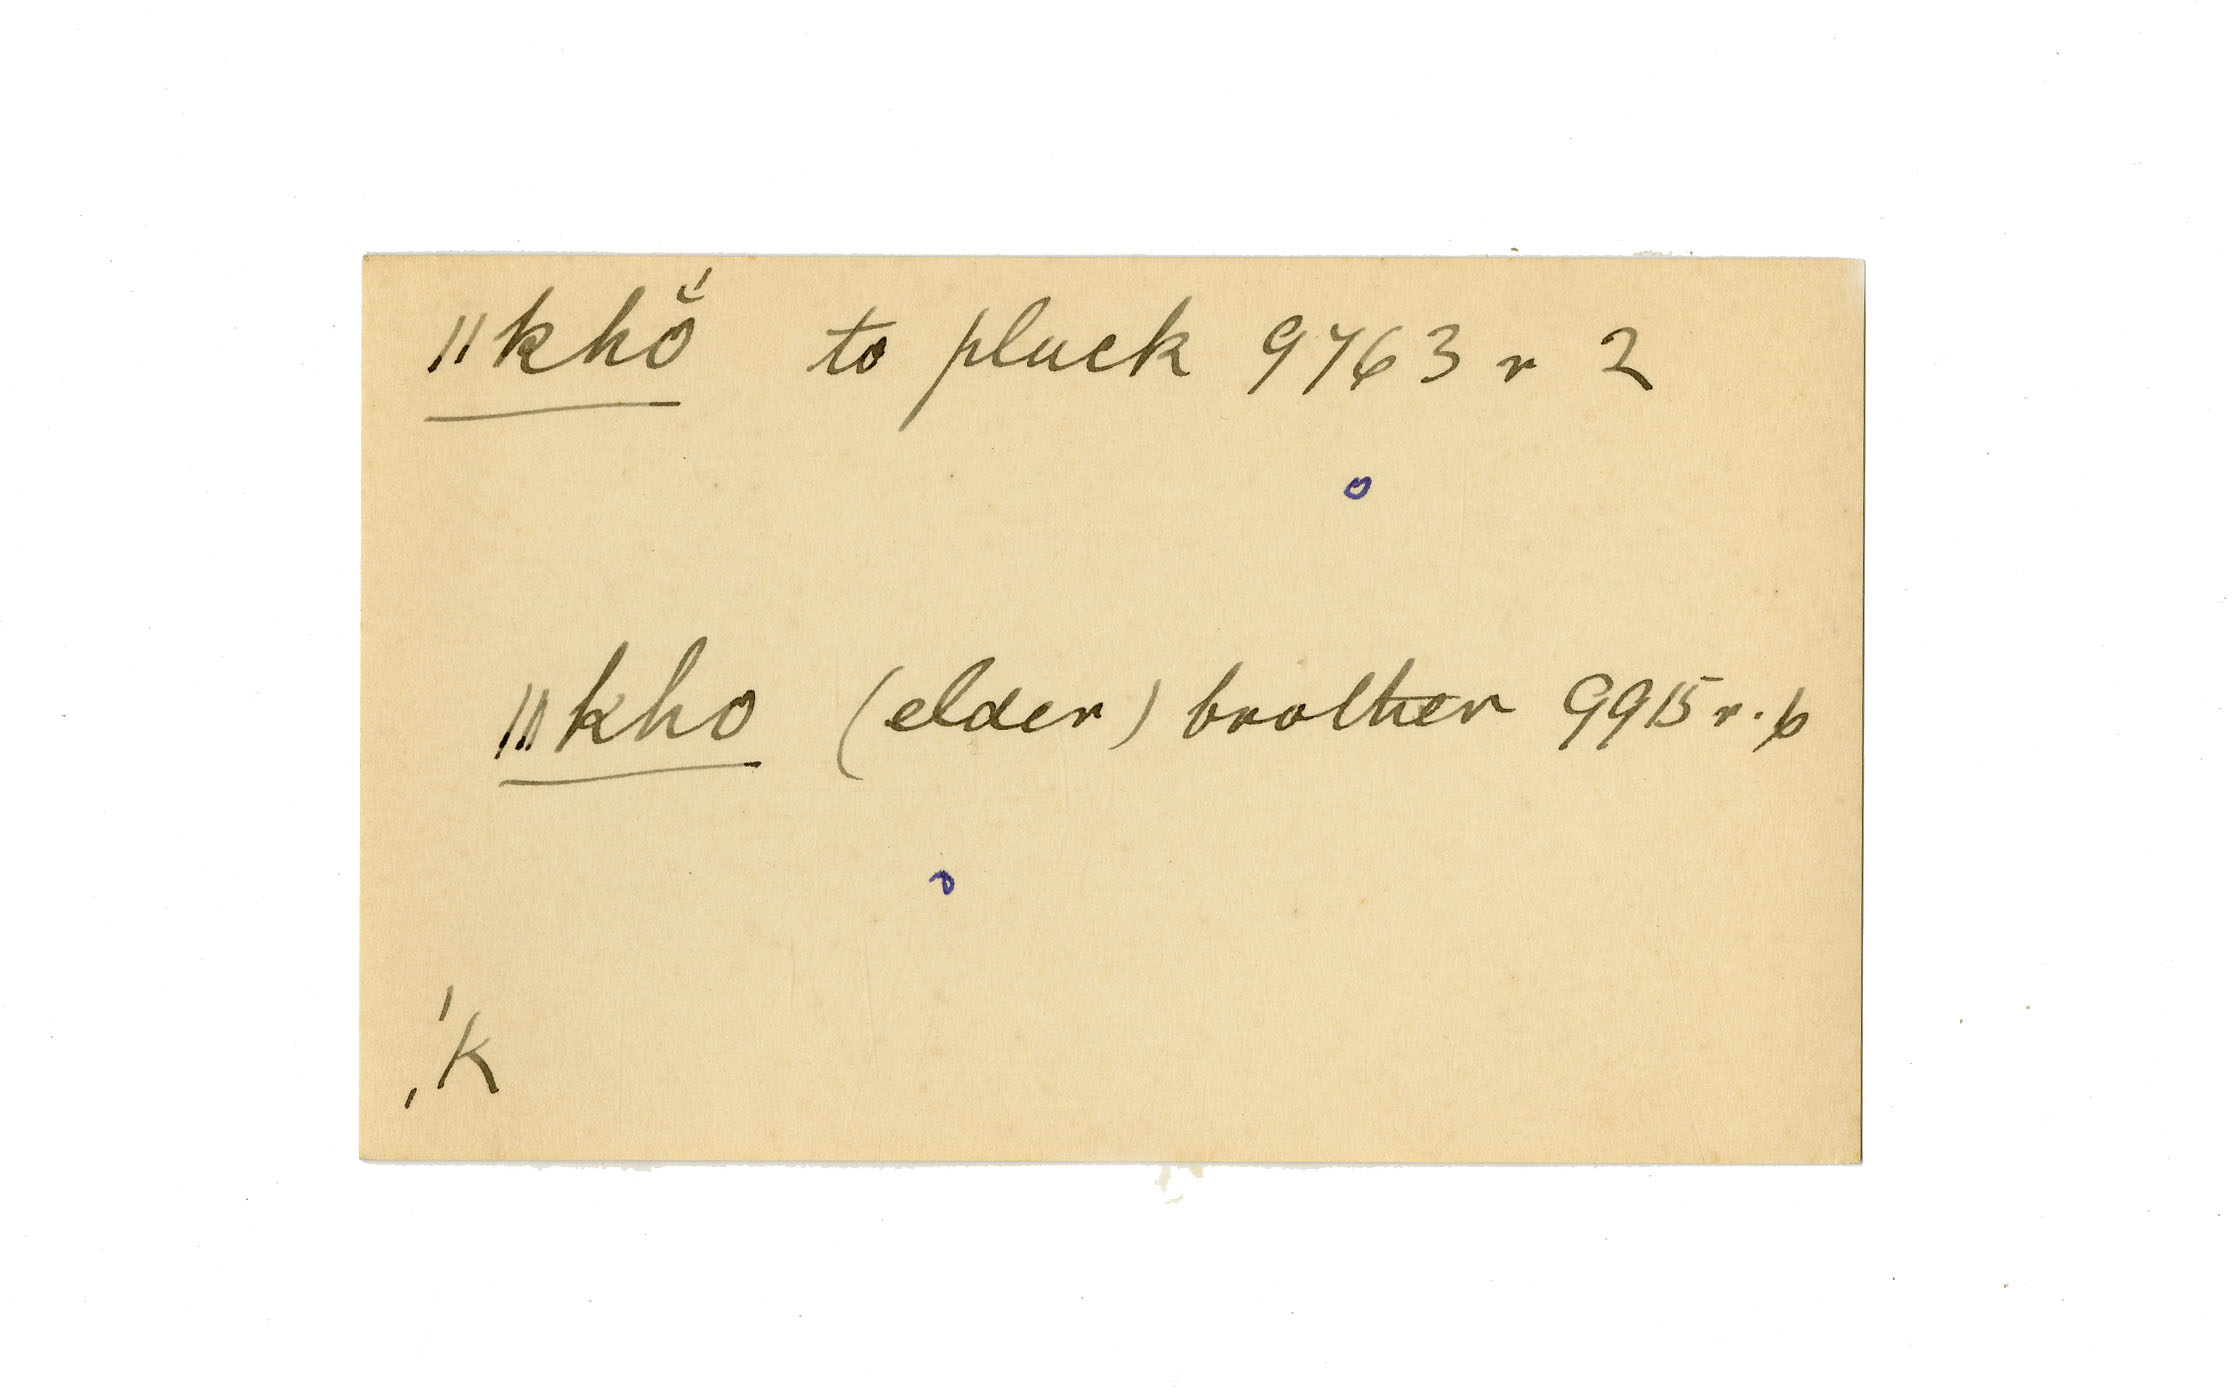 ǁkhŏ́ to pluck 9763 r 2
ǁkho (elder) brother 9915 r. b
ˌ'K